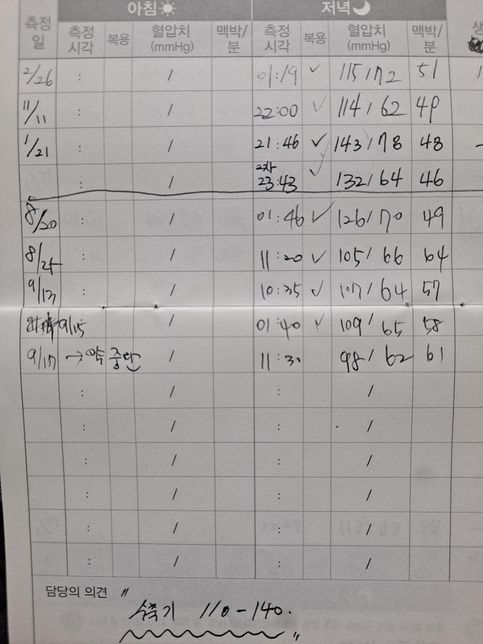 아침 저녁
측정일 측정시각 복용 혈압치 (mmHg) 맥박/분 측정시각 복용 혈압치 (mmHg) 맥박/분 생
2/26 : / 01:19 ✓ 115/72 51
11/11 : / 22:00 ✓ 114/62 49
1/21 : / 21:46 ✓ 143/78 48
: / 2차 23:43 ✓ 132/64 46
8/20 : / 01:46 ✓ 126/70 49
8/25 : / 11:20 ✓ 105/66 64
9/13 : / 10:35 ✓ 107/64 57
9/15 / 01:40 ✓ 109/65 58
9/17 → 약 중단 / 11:30 98/62 61
: / : /
: / : /
: / : /
: / : /
: / : /
: / : /
담당의 의견 "
수축기 110-140.
"